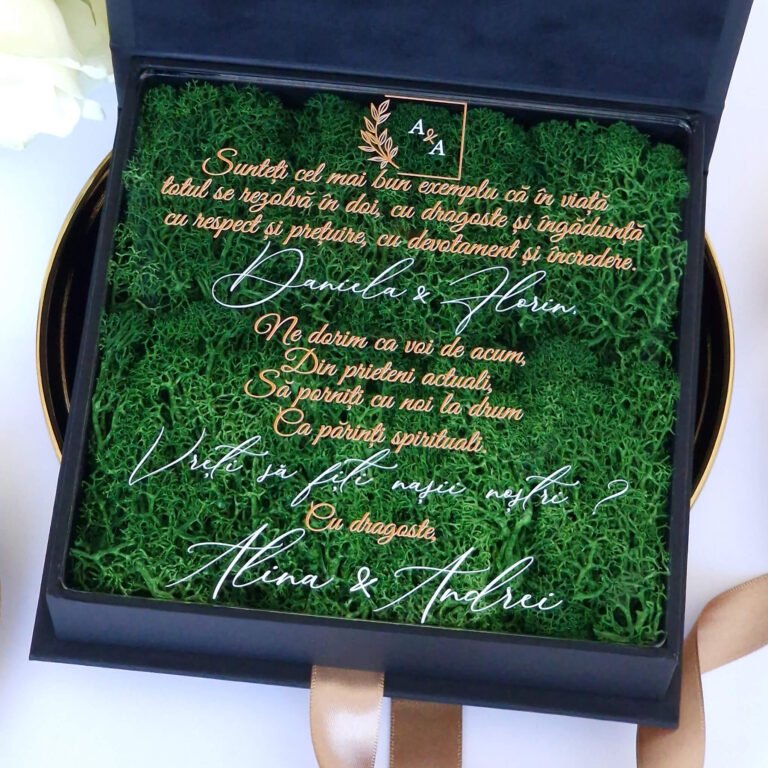 A&A
Sunteți cel mai bun exemplu că în viață
totul se rezolvă în doi, cu dragoste și îngăduință
cu respect și prețuire, cu devotament și încredere.
Daniela & Florin.
Ne dorim ca voi de acum,
Din prieteni actuali,
Să porniți cu noi la drum
Ca părinți spirituali.
Vreți să fiți nașii noștri ?
Cu dragoste,
Alina & Andrei